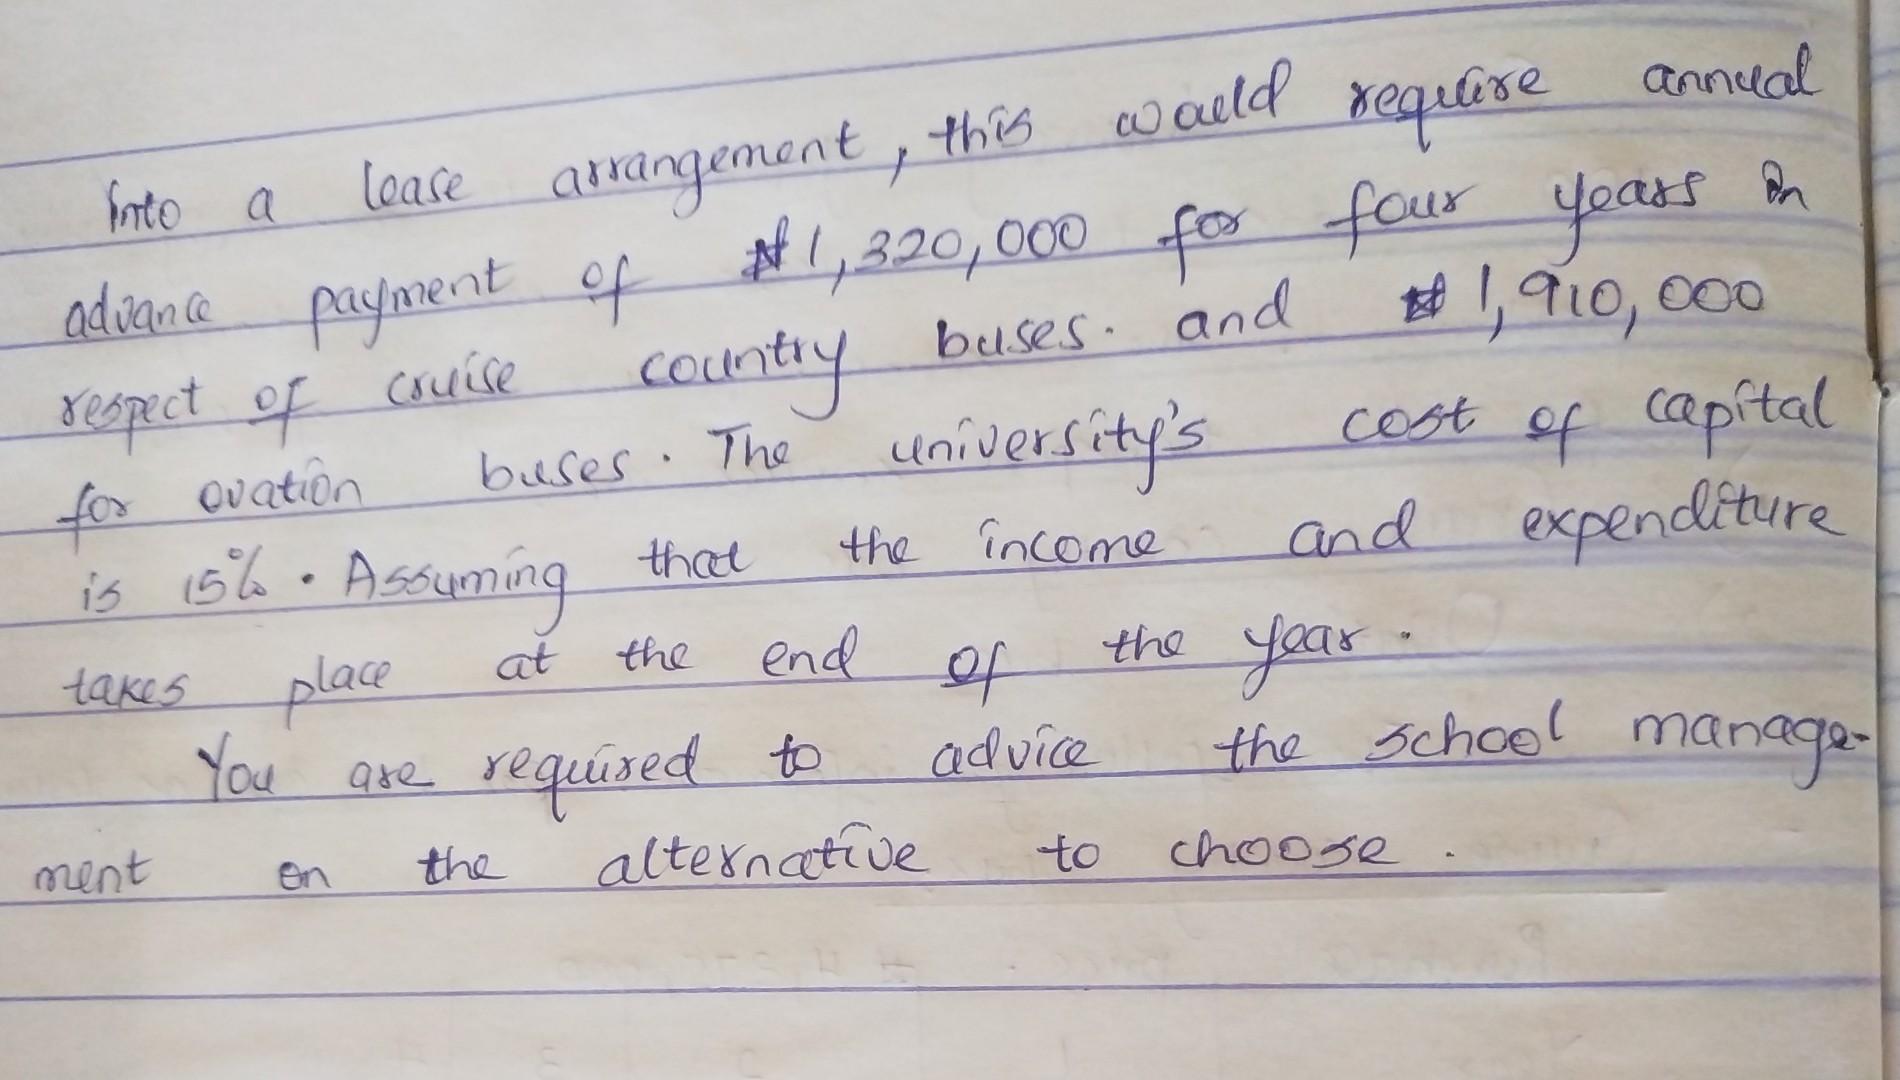 into a lease arrangement, this would require annual
advance payment of ₦1,320,000 for four years in
respect of cruise country buses. and ₦1,910,000
for ovation buses. The university's cost of capital
is 15%. Assuming that the income and expenditure
takes place at the end of the year.
You are required to advice the school manage-
ment on the alternative to choose.